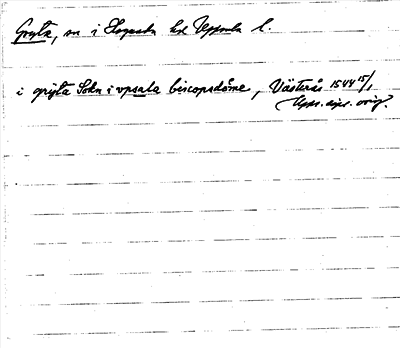 Gryta, sn i Hagunda hd Uppsala l.
i gryta Sokn i vpsala biscopsdöme, Västerås 1544 15/1
Upps. dipl. orig.